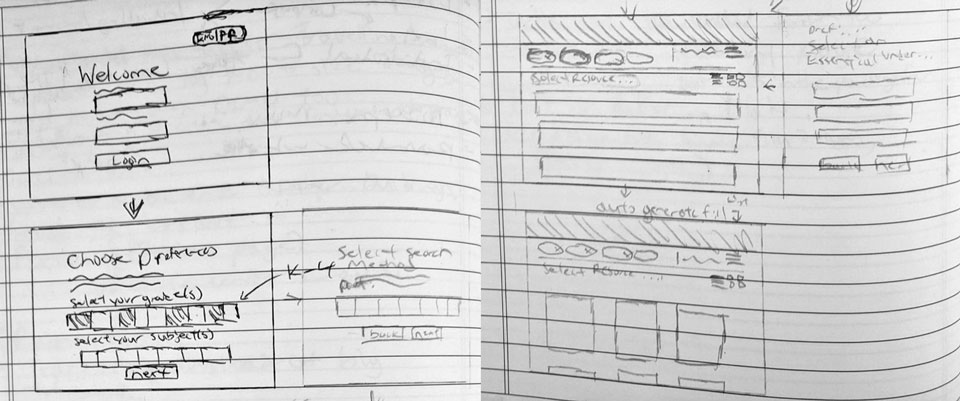 Welcome
Login
Choose Preferences
select your grade(s)
select your subject(s)
next
K-4
Select search
back next
Select Resource...
Select
Essential Under...
back next
auto generate fill
Select Resource...